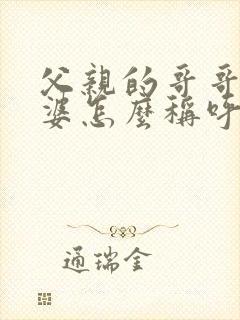 父親的哥哥
婆怎麼稱呼
通瑞金